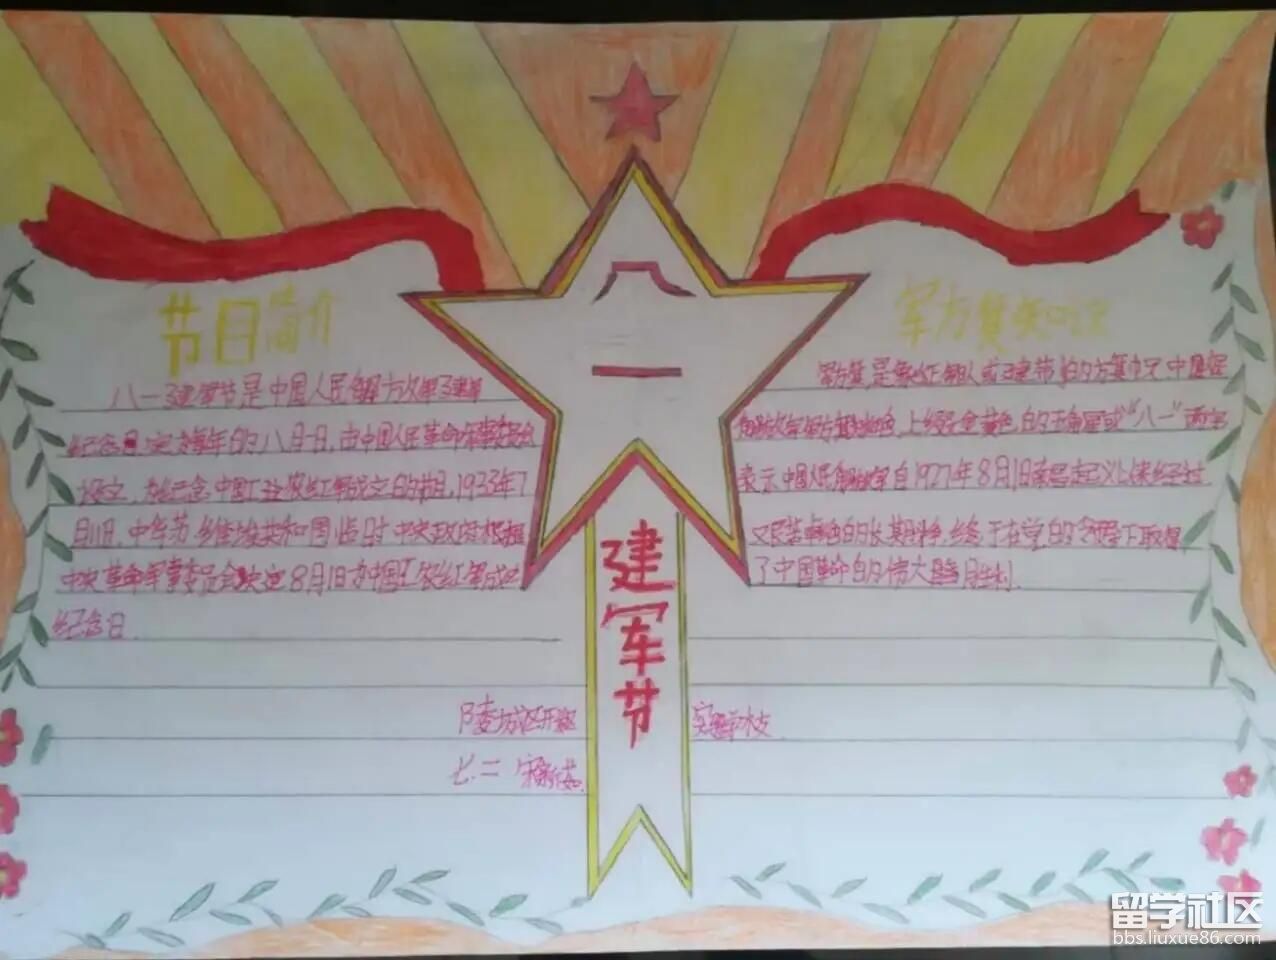 八
一
建军节
节日简介
八一建军节是中国人民解放军建军
纪念日,定为每年的八月一日,由中国人民革命军事委员会
设立,为纪念中国工农红军成立的节日,1933年7
月11日,中华苏维埃共和国临时中央政府根据
中央革命军事委员会 8月1日为中国工农红军成立
纪念日.
军方
军
上缀金黄色的五角星或“八一”两字
表示中国人民解放军自1927年8月1日南昌起义以来经过
长期 终于在党的领导下取得
了中国革命的伟大 胜利.
陵城区开发区 实验学校
七.二 宋
留学社区
bbs.liuxue86.com